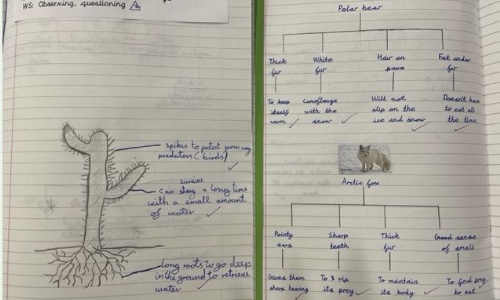 WS: Observing, questioning
spikes to potect
predators (birds)
survive
can a long time
with a small amount
of water
long roots to go deep
in the ground to retrieve
water
Polar bear
Thick
fur
White
fur
Hair on
paws
Fat under
fur
To keep
itself
warm
Camoflauge
with the
snow
Will not
slip on the
ice and snow
Doesn't have
to eat all
the time
Arctic fox
Pointy
ears
Sharp
teeth
Thick
fur
Good sense
of smell
Gives them
sharp hearing
To rip
its prey
To maintain
its body
To find prey
to eat